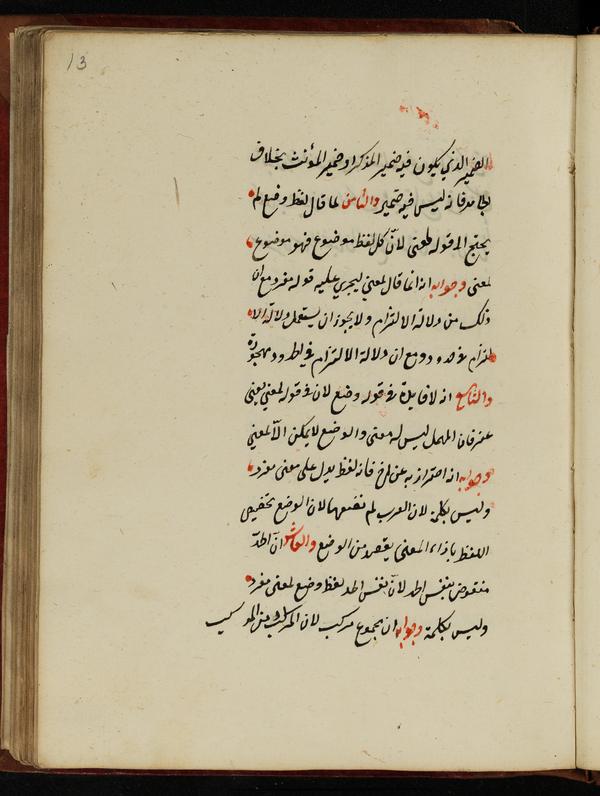 13
الضمير الذي يكون فيه ضمير المذكر او ضمير المؤنث بخلاف
لجامد فانه ليس فيه ضمير والثامن لما قال لفظ وضع لم
يحتج الى قوله لمعنى لان كل لفظ موضوع فهو موضوع
لمعنى وجوابه انه انما قال لمعنى ليجري عليه قوله مفرد مع ان
ذلك من دلالة الالتزام ولا يجوز ان يستعمل دلالة الا
لتزام في حدود ومع ان دلالة الالتزام في الحدود مهجورة
والتاسع انه لا فايدة في قوله وضع لان في قوله لمعنى يغني
عنه فان المهمل ليس له معنى والوضع لا يمكن الا لمعنى
وجوابه انه احتراز به عن نلخ فانه لفظ يدل على معنى مفرد
وليس بكلمة لان العرب لم تضعها لان الوضع تخصيص
اللفظ باذاء المعنى يقصد من الوضع والعاشر ان الحد
منقوض بنفس الحد لان نفس الحد لفظ وضع لمعنى مفرد
وليس بكلمة وجوابه ان مجموع مركب لان المراد من المركب